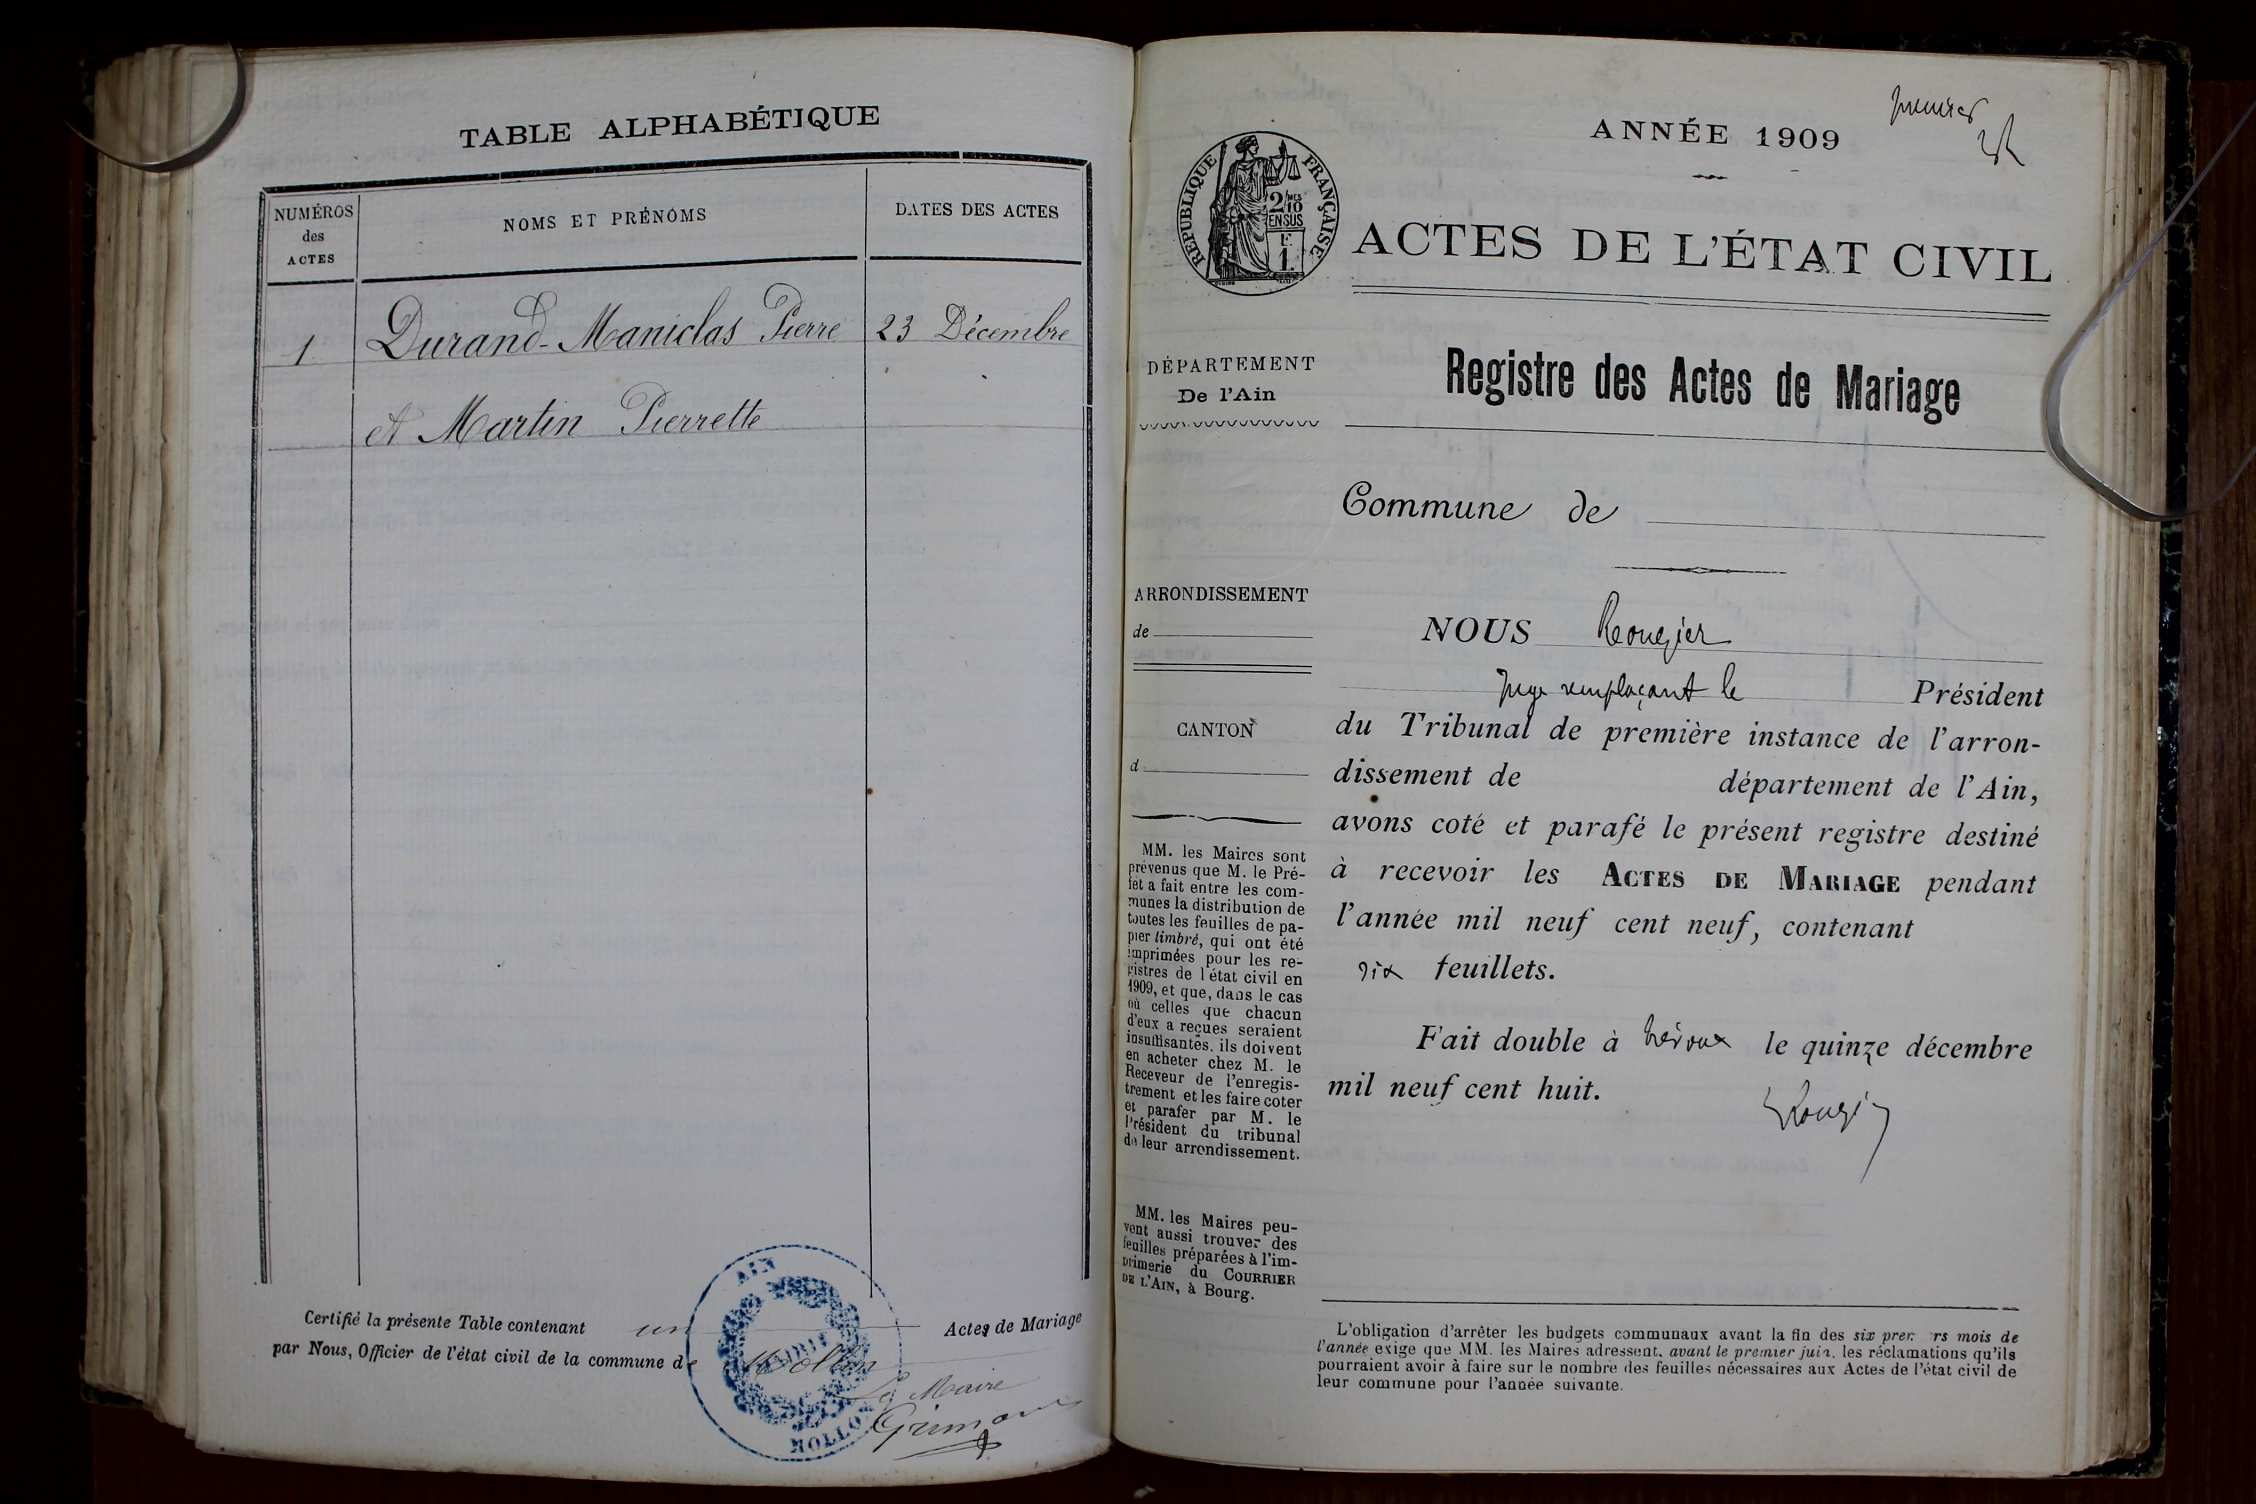 TABLE ALPHABÉTIQUE
NUMÉROS
des
ACTES
NOMS ET PRÉNOMS
DATES DES ACTES
1 Durand-Maniclas Pierre 23 Décembre
et Martin Pierrette
Certifié la présente Table contenant un Actes de Mariage
par Nous, Officier de l'état civil de la commune de Mollon
Le Maire
AIN
MAIRIE
MOLLON
premier
ANNÉE 1909
RÉPUBLIQUE FRANÇAISE
2/10 MES
EN SUS
F
1
ACTES DE L'ÉTAT CIVIL
DÉPARTEMENT
De l'Ain
Registre des Actes de Mariage
Commune de
ARRONDISSEMENT
de
CANTON
d
MM. les Maires sont
prévenus que M. le Pré-
fet a fait entre les com-
munes la distribution de
toutes les feuilles de pa-
pier timbré, qui ont été
imprimées pour les re-
gistres de l'état civil en
1909, et que, dans le cas
où celles que chacun
d'eux a reçues seraient
insuffisantes, ils doivent
en acheter chez M. le
Receveur de l'enregis-
trement et les faire coter
et parafer par M. le
Président du tribunal
de leur arrondissement.
MM. les Maires peu-
vent aussi trouver des
feuilles préparées à l'im-
primerie du COURRIER
DE L'AIN, à Bourg.
NOUS Rougier
juge remplaçant le Président
du Tribunal de première instance de l'arron-
dissement de département de l'Ain,
avons coté et parafé le présent registre destiné
à recevoir les ACTES DE MARIAGE pendant
l'année mil neuf cent neuf, contenant
six feuillets.
Fait double à Trévoux le quinze décembre
mil neuf cent huit.
Rougier
L'obligation d'arrêter les budgets communaux avant la fin des six premiers mois de
l'année exige que MM. les Maires adressent, avant le premier juin, les réclamations qu'ils
pourraient avoir à faire sur le nombre des feuilles nécessaires aux Actes de l'état civil de
leur commune pour l'année suivante.